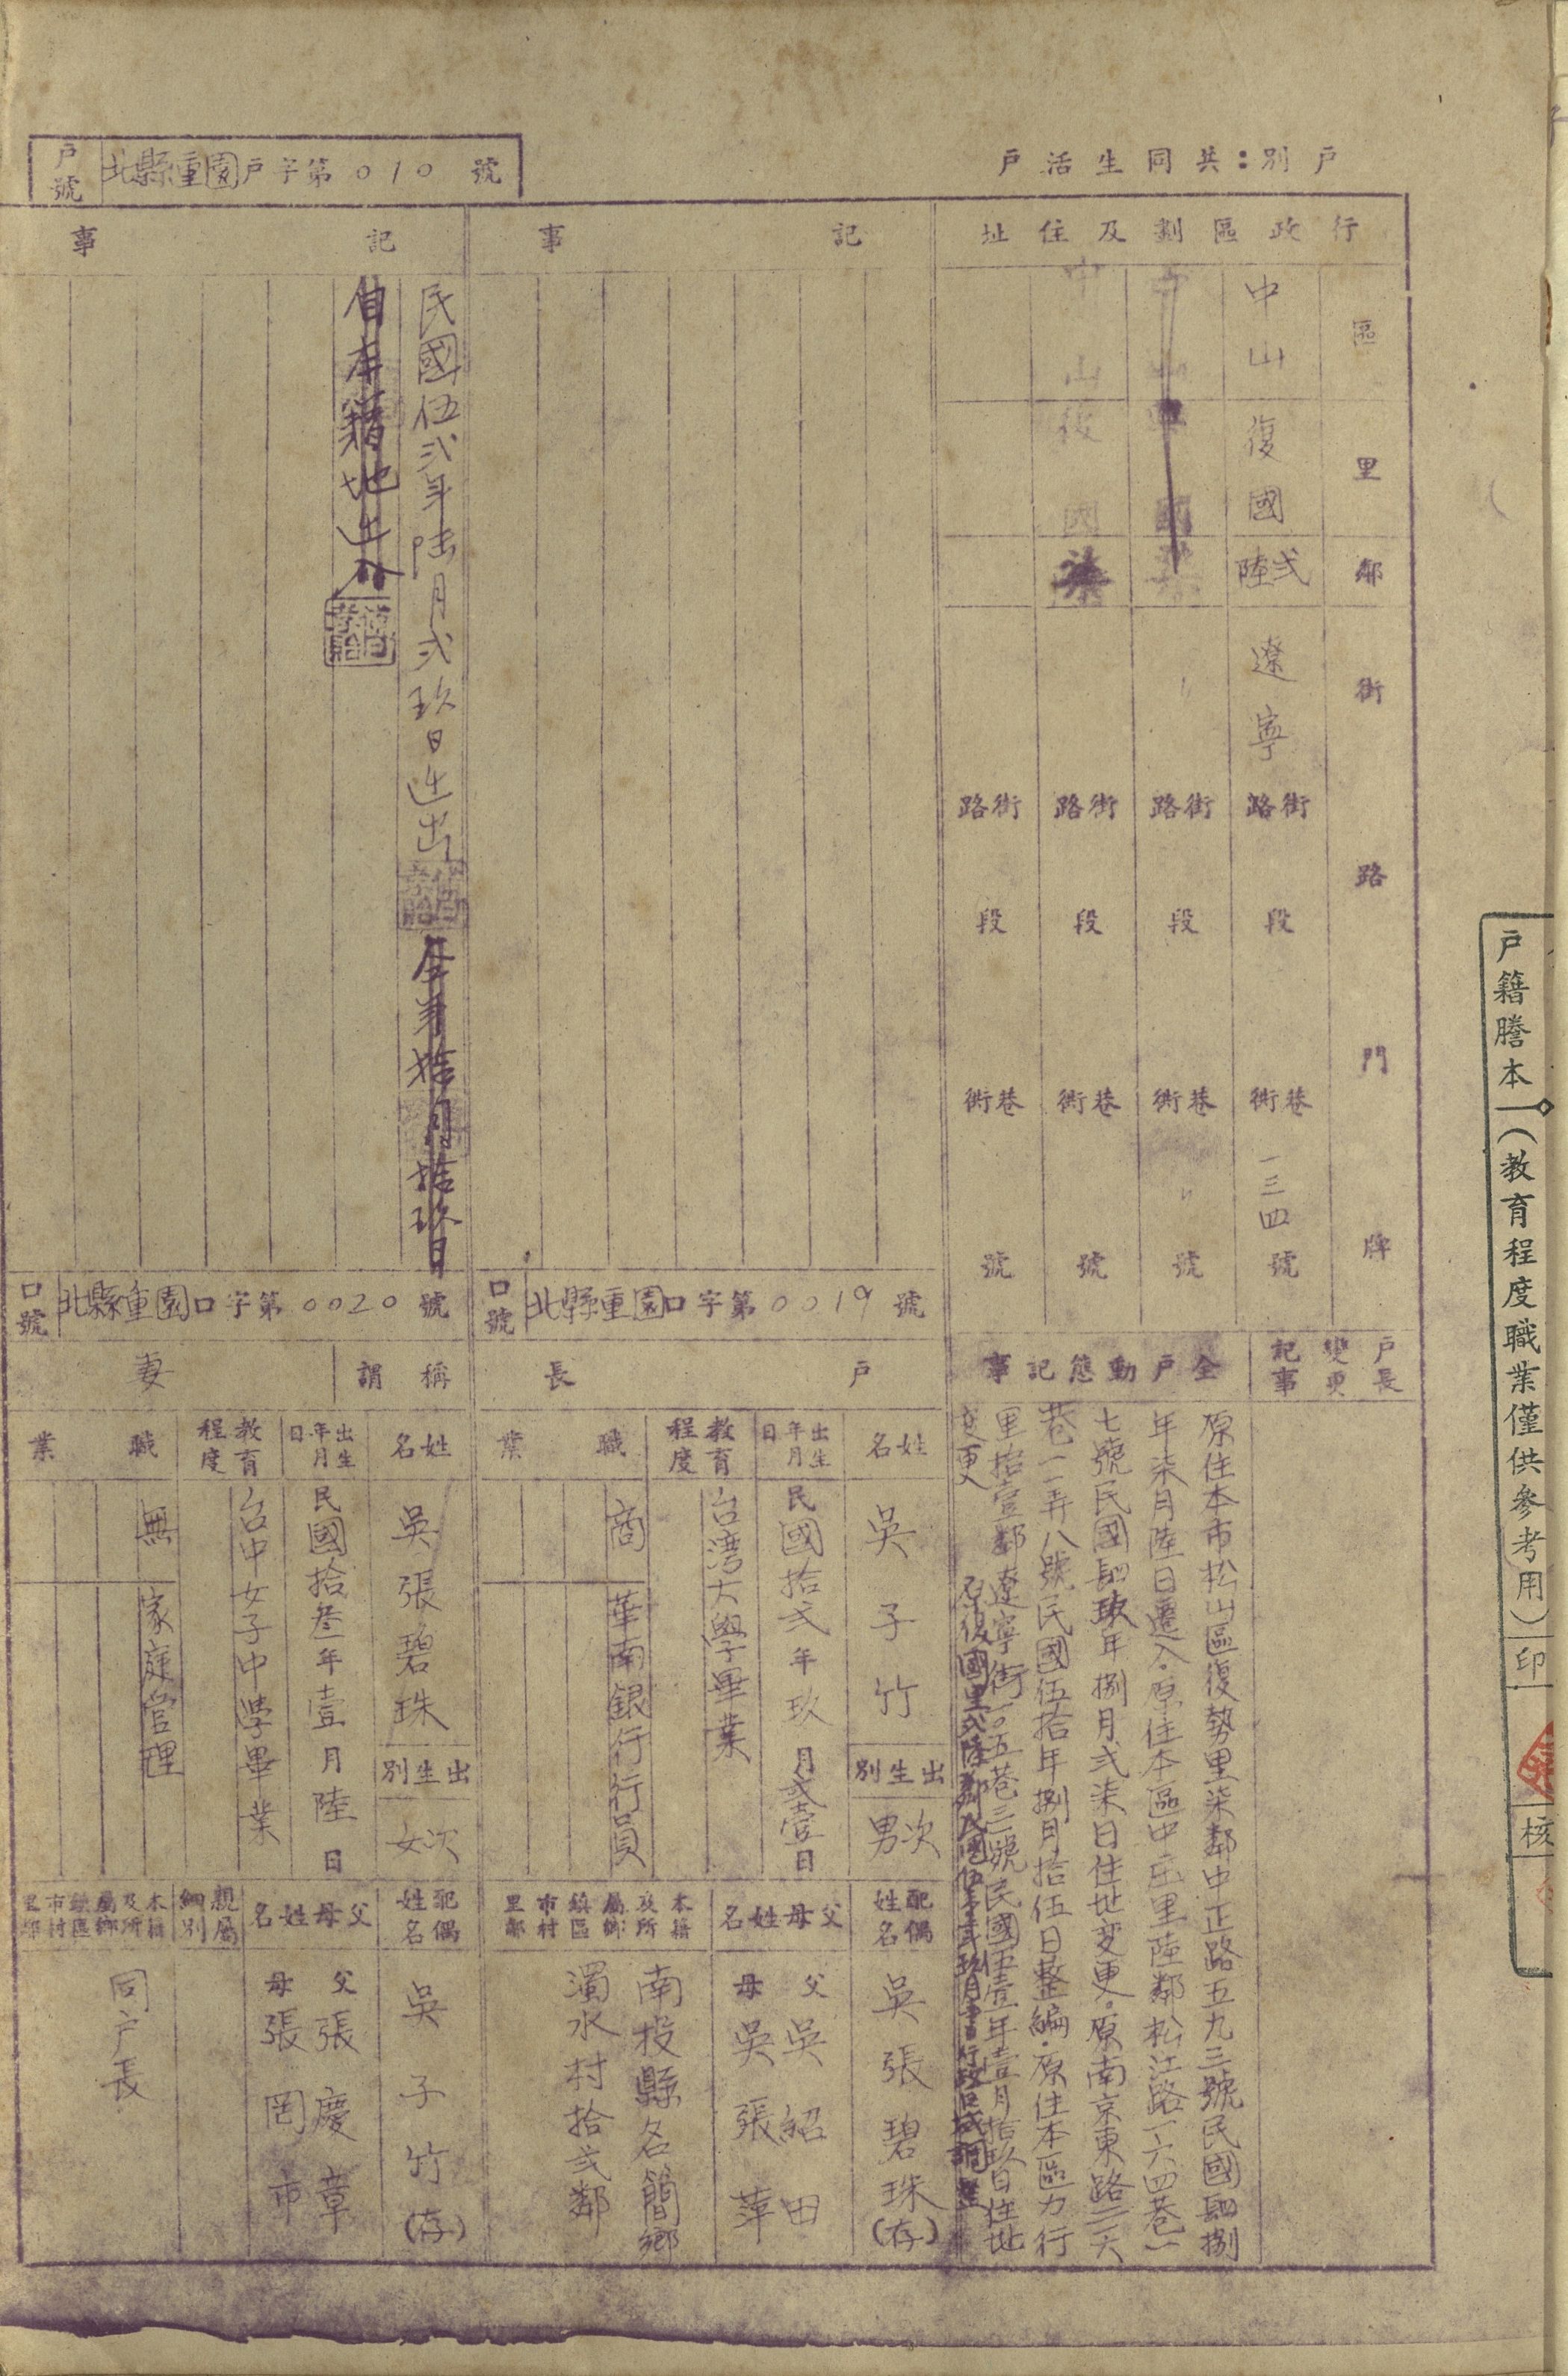 戶籍謄本(教育程度職業僅供參考用)印
核
戶別:共同生活戶
戶號 北縣重園戶字第010號
行政區劃及住址
區 里 鄰 街 路 門 牌
中山 復國 弍陸 遼寧 街路 段 巷衖 一三四號
街路 段 巷衖 號
中山 復國 街路 段 巷衖 號
街路 段 巷衖 號
戶長變更記事
全戶動態記事
原住本市松山區復勢里柒鄰中正路五九三號民國肆捌
年柒月陸日遷入.原住本區中庄里陸鄰松江路一六四巷一
七號民國肆玖年捌月弍柒日住址變更.原南京東路三天
巷一一弄八號民國伍拾年捌月拾伍日整編.原住本區力行
里拾壹鄰遼寧街一〇五巷三號民國伍壹年壹月拾玖日住址
變更
原復國里弍陸鄰民國伍 年玖月 日行政區域調整
記事
口號 北縣重園口字第0019號
戶長
姓名 吳子竹
出生別 次男
出生年月日 民國拾弍年玖月弍壹日
教育程度 台湾大學畢業
職業 商 華南銀行行員
配偶姓名 吳張碧珠(存)
父母姓名 父 吳紹田
母 吳張萍
本籍及所屬鄉鎮區市村里鄰 南投縣名簡鄉
濁水村拾弍鄰
記事
民國伍弍年陸月弍玖日遷出 全年拾月拾玖日
自本籍地遷入
口號 北縣重園口字第0020號
稱謂 妻
姓名 吳張碧珠
出生別 次女
出生年月日 民國拾叁年壹月陸日
教育程度 台中女子中學畢業
職業 無 家庭管理
配偶姓名 吳子竹(存)
父母姓名 父 張慶章
母 張罔市
親屬細別
本籍及所屬鄉鎮區市村里鄰 同戶長